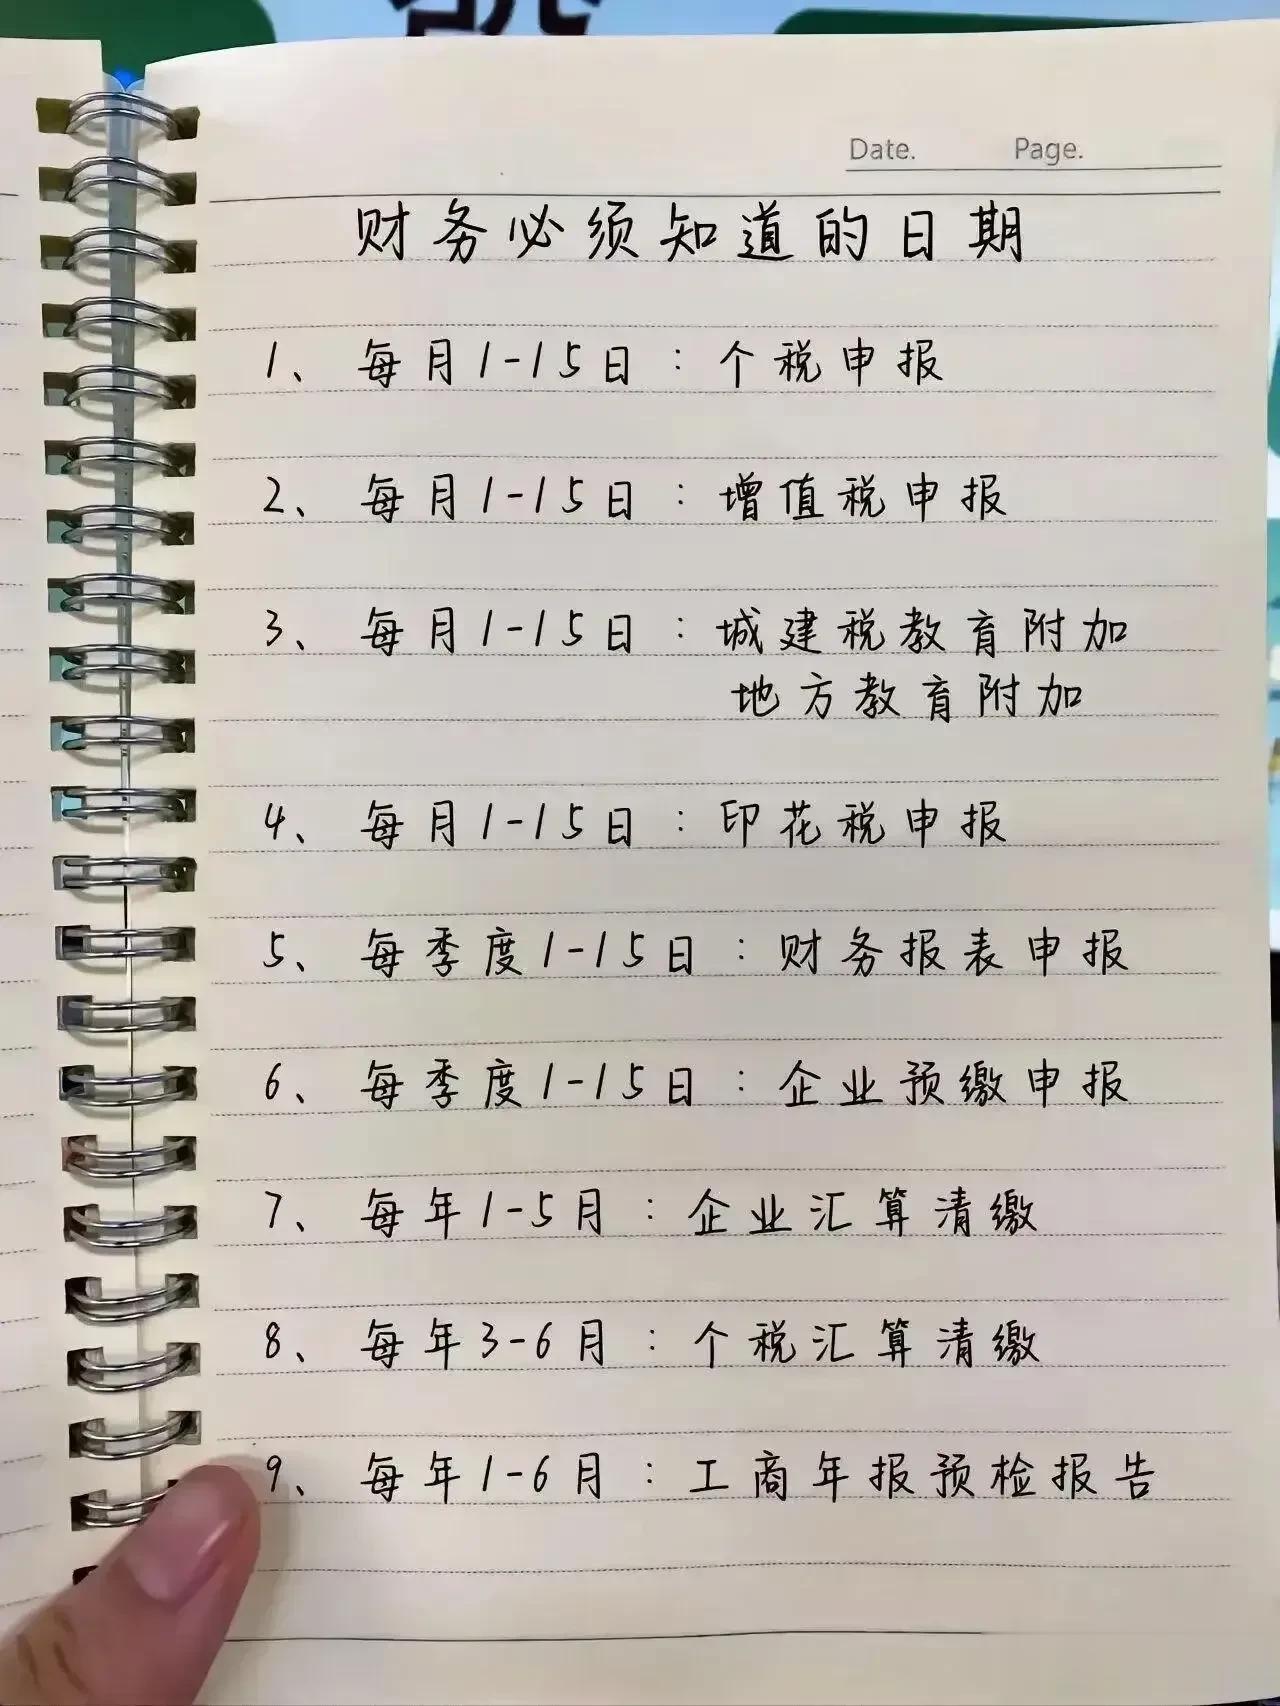 Date. Page.
财务必须知道的日期
1、每月1-15日：个税申报
2、每月1-15日：增值税申报
3、每月1-15日：城建税教育附加
地方教育附加
4、每月1-15日：印花税申报
5、每季度1-15日：财务报表申报
6、每季度1-15日：企业预缴申报
7、每年1-5月：企业汇算清缴
8、每年3-6月：个税汇算清缴
9、每年1-6月：工商年报预检报告